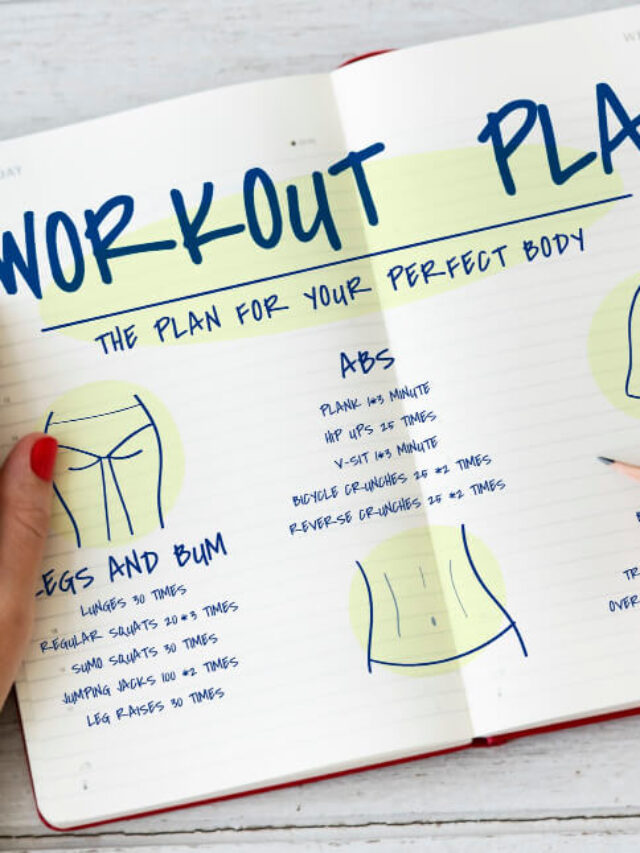 DAY
WORKOUT PLA
THE PLAN FOR YOUR PERFECT BODY
ABS
PLANK 1*3 MINUTE
HIP UPS 25 TIMES
V-SIT 1*3 MINUTE
BICYCLE CRUNCHES 25 *2 TIMES
REVERSE CRUNCHES 25 *2 TIMES
LEGS AND BUM
LUNGES 30 TIMES
REGULAR SQUATS 20*3 TIMES
SUMO SQUATS 30 TIMES
JUMPING JACKS 100 *2 TIMES
LEG RAISES 30 TIMES
TR
OVER